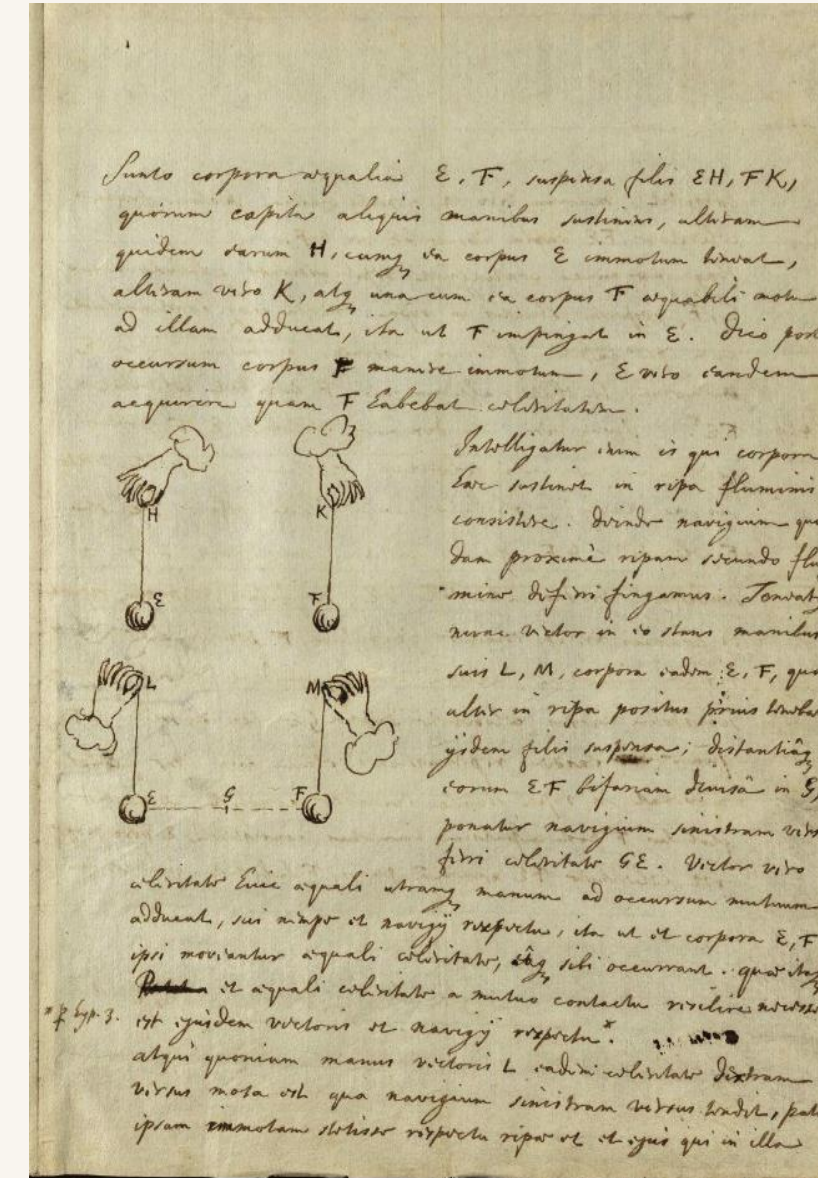 Sunto corpora æqualia E, F, suspensa filis EH, FK,
quorum capita aliquis manibus sustinens, alteram
quidem earum H, cumq ea corpus E immotum teneat,
alteram vero K, atq una cum ea corpus F æquabili motu
ad illam adducat, ita ut F impingat in E. Dico post
occursum corpus F manere immotum, E vero eandem
acquirere quam F habebat celeritatem.
H
K
E
F
L
M
E
G
F
Intelligatur enim is qui corpora
hæc sustinet in ripa fluminis
consistere. deinde navigium quo
dam proximè ripam secundo flu
mine deferri fingamus. Teneatq
nunc vector in eo stans manibus
suis L, M, corpora eadem E, F, quæ
alter in ripa positus prius teneba
ijsdem filis suspensa; distantiâq
eorum EF bifariam divisâ in G,
ponatur navigium sinistram vers
ferri celeritate GE. Vector vero
celeritate huic æquali utramq manum ad occursum mutuum
adducat, sui nempe et navigij respectu, ita ut et corpora E, F
ipsi moveantur æquali celeritate, sibi occurrant. quæ itaq
et æquali celeritate a mutuo contactu resilire necesse
* hyp. 3.
est ejusdem vectoris et navigij respectu*.
atqui quoniam manus vectoris L eadem celeritate dextram
versus mota est qua navigium sinistram versus tendit, pat
ipsam immotam stetisse respectu ripæ et et ejus qui in illa